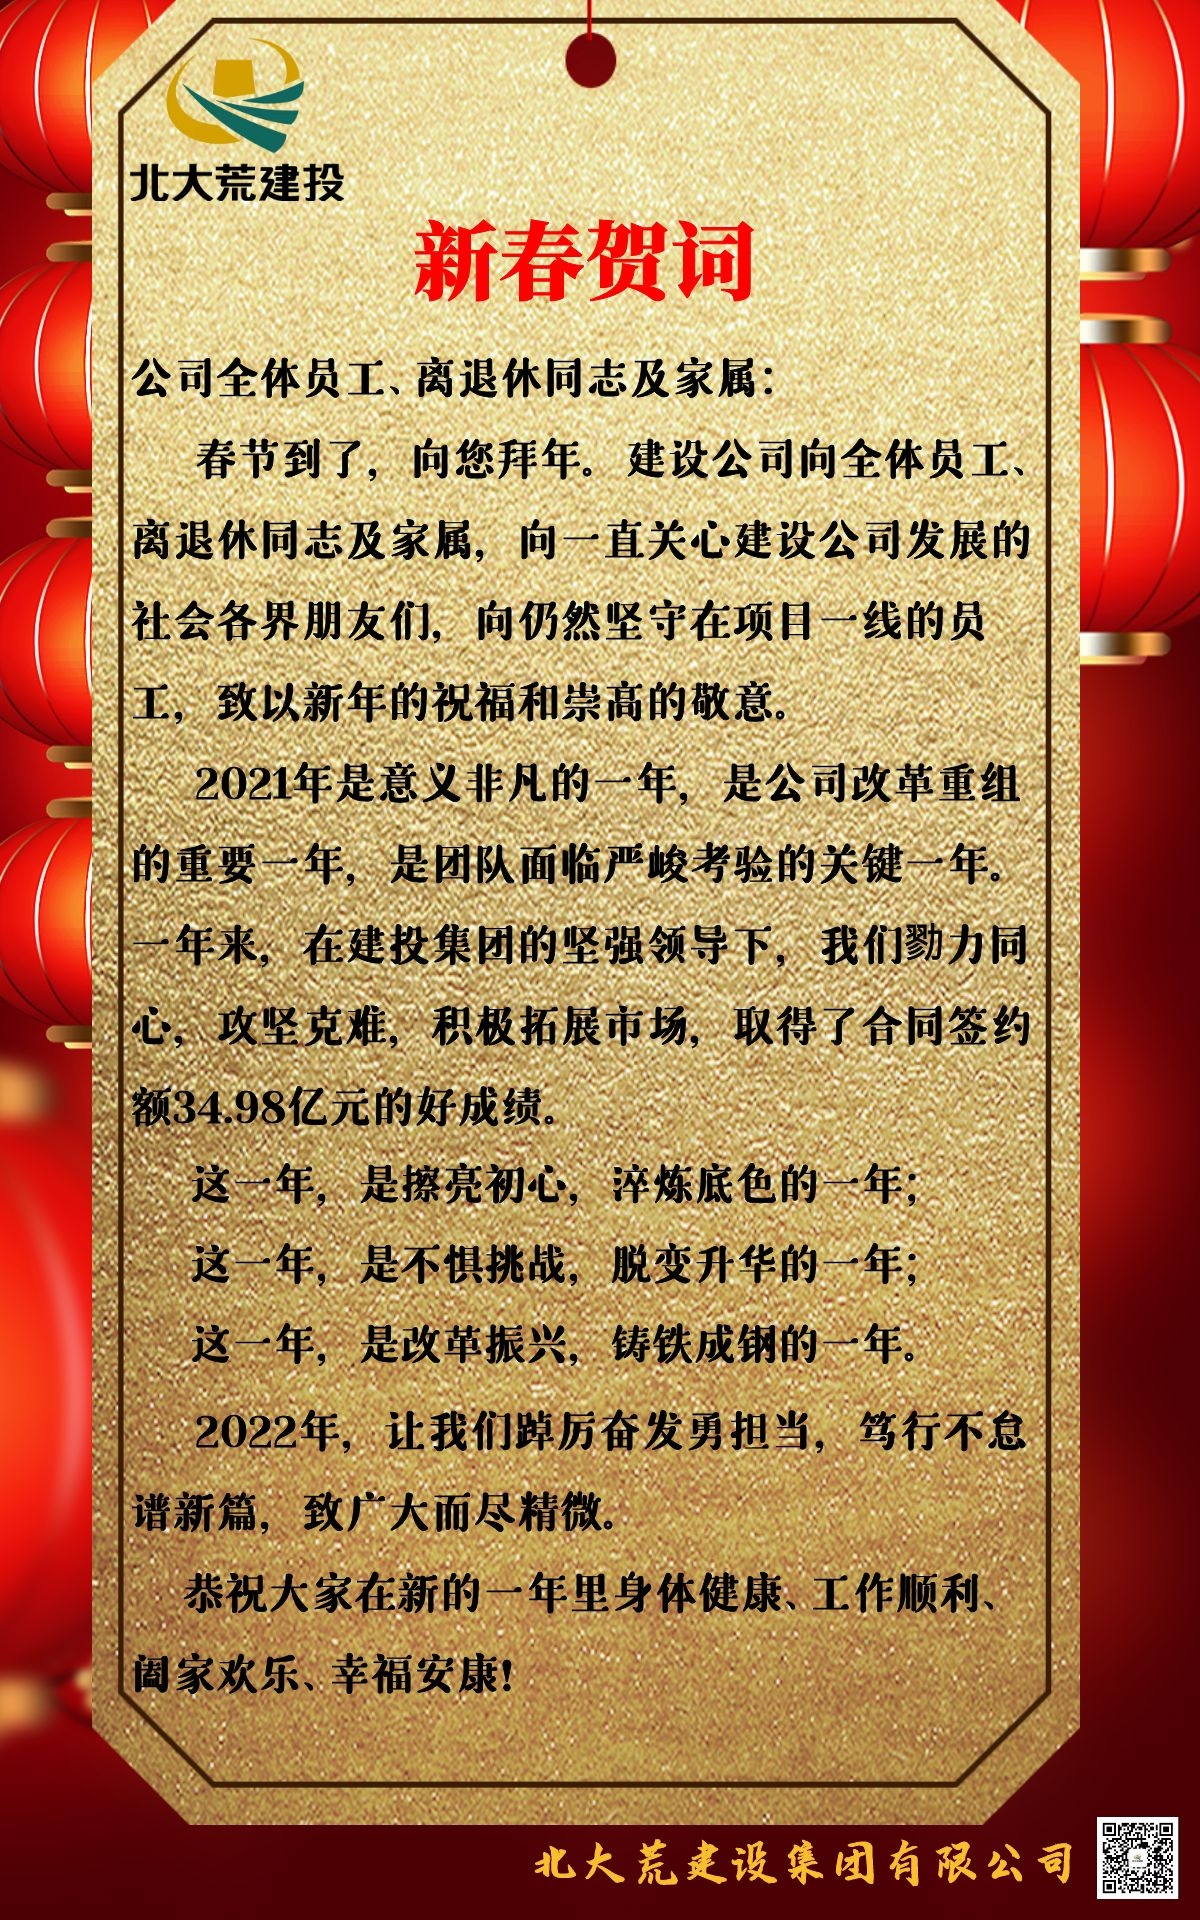 北大荒建投
新春贺词
公司全体员工、离退休同志及家属：
春节到了，向您拜年。建设公司向全体员工、
离退休同志及家属，向一直关心建设公司发展的
社会各界朋友们，向仍然坚守在项目一线的员
工，致以新年的祝福和崇高的敬意。
2021年是意义非凡的一年，是公司改革重组
的重要一年，是团队面临严峻考验的关键一年。
一年来，在建投集团的坚强领导下，我们勠力同
心，攻坚克难，积极拓展市场，取得了合同签约
额34.98亿元的好成绩。
这一年，是擦亮初心，淬炼底色的一年；
这一年，是不惧挑战，脱变升华的一年；
这一年，是改革振兴，铸铁成钢的一年。
2022年，让我们踔厉奋发勇担当，笃行不怠
谱新篇，致广大而尽精微。
恭祝大家在新的一年里身体健康、工作顺利、
阖家欢乐、幸福安康！
北大荒建设集团有限公司